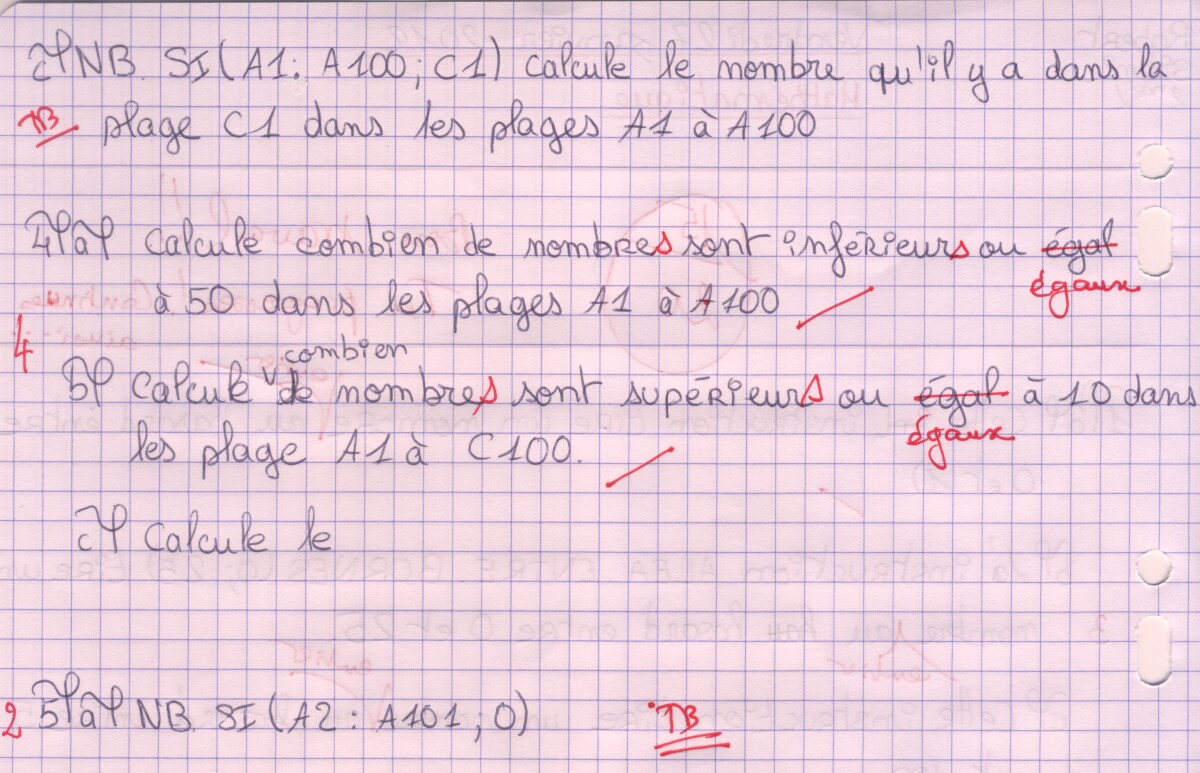 c) NB. SI(A1: A100; C1) calcule le nombre qu'il y a dans la
TB plage C1 dans les plages A1 à A100
4) a) Calcule combien de nombres sont inférieurs ou égal
égaux
à 50 dans les plages A1 à A100
4
combien
b) Calcule de nombres sont supérieurs ou égal à 10 dans
égaux
les plage A1 à C100.
c) Calcule le
2 5) a) NB. SI(A2: A101; 0) TB